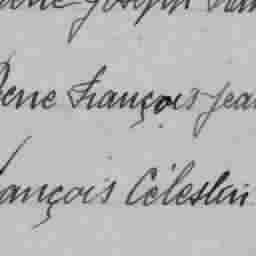 Joseph
René François Jean
François Célestin